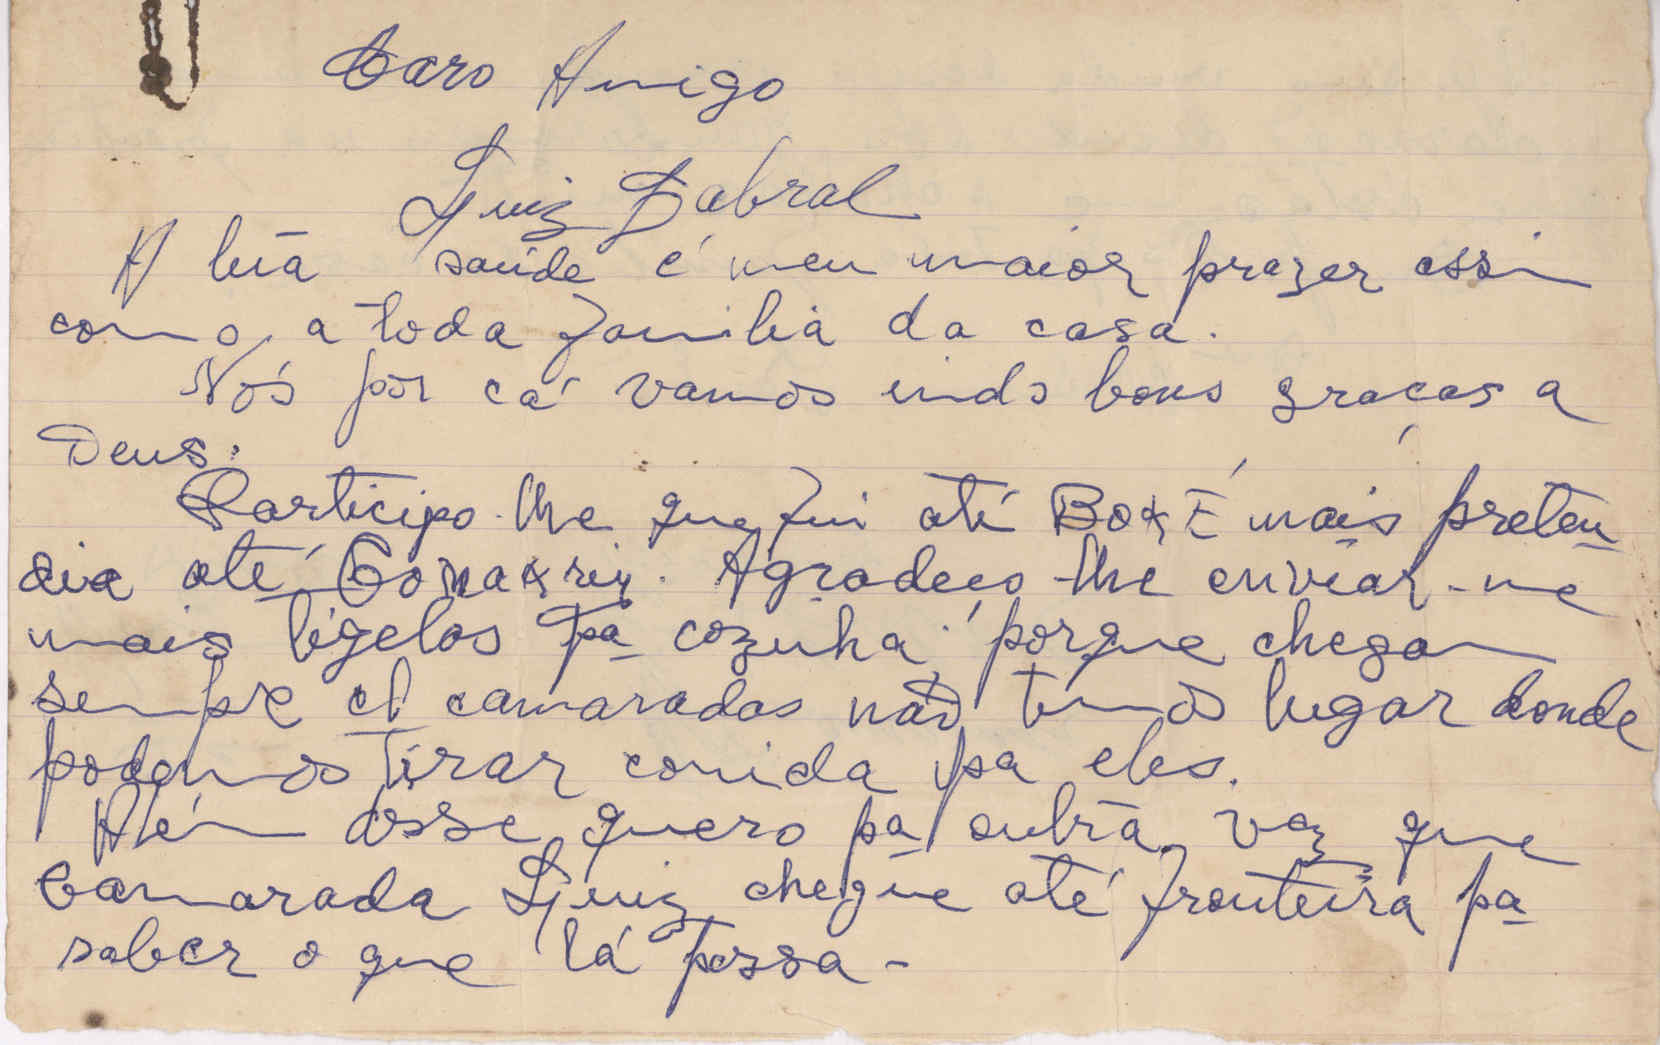 Caro Amigo
Luiz Cabral
A tua saúde é meu maior prazer assim
como, a toda familia da casa.
Nós por cá vamos indo bons graças a
Deus.
Participo-lhe que fui até BOKÉ mais preten
dia até Conakry. Agradeço-lhe enviar-me
mais tigelas pa cozinha, porque chegam
sempre camaradas não temos lugar donde
podemos tirar comida pa eles.
Além desse quero pa outra vez que
Camarada Luiz chegue até fronteira pa
saber o que lá passa-